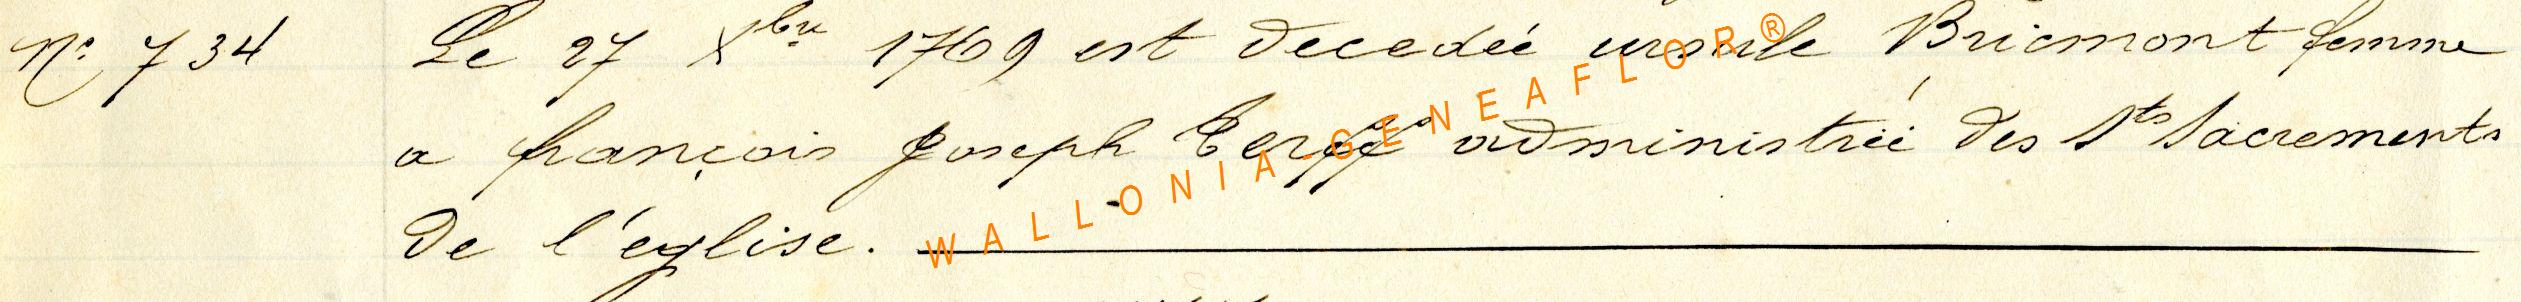 N° 734 Le 27 Xbre 1769 est decedée ursule Bricmont femme
a françois Joseph administrée des Sts Sacrements
de l'église.
WALLONIA-GENEAFLOR®